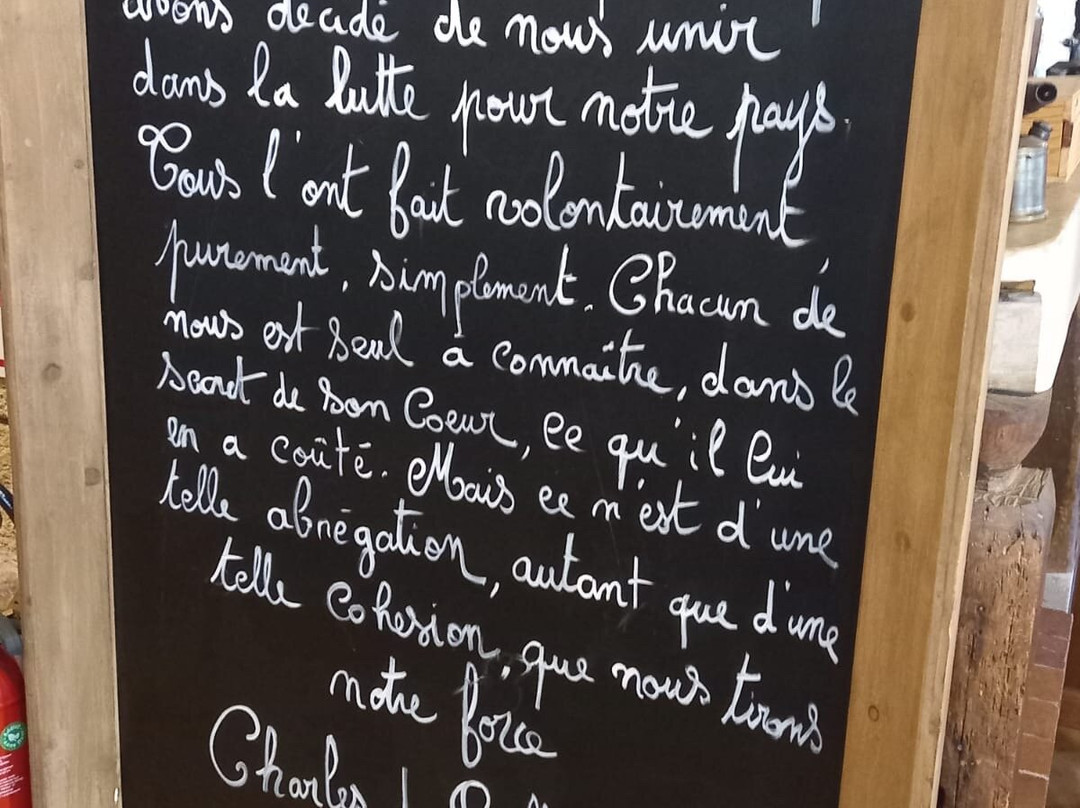 avons décidé de nous unir
dans la lutte pour notre pays.
Tous l'ont fait volontairement
purement, simplement. Chacun de
nous est seul à connaître, dans le
secret de son Coeur, ce qu'il lui
en a coûté. Mais ce n'est d'une
telle abnégation, autant que d'une
telle cohesion, que nous tirons
notre force
Charles